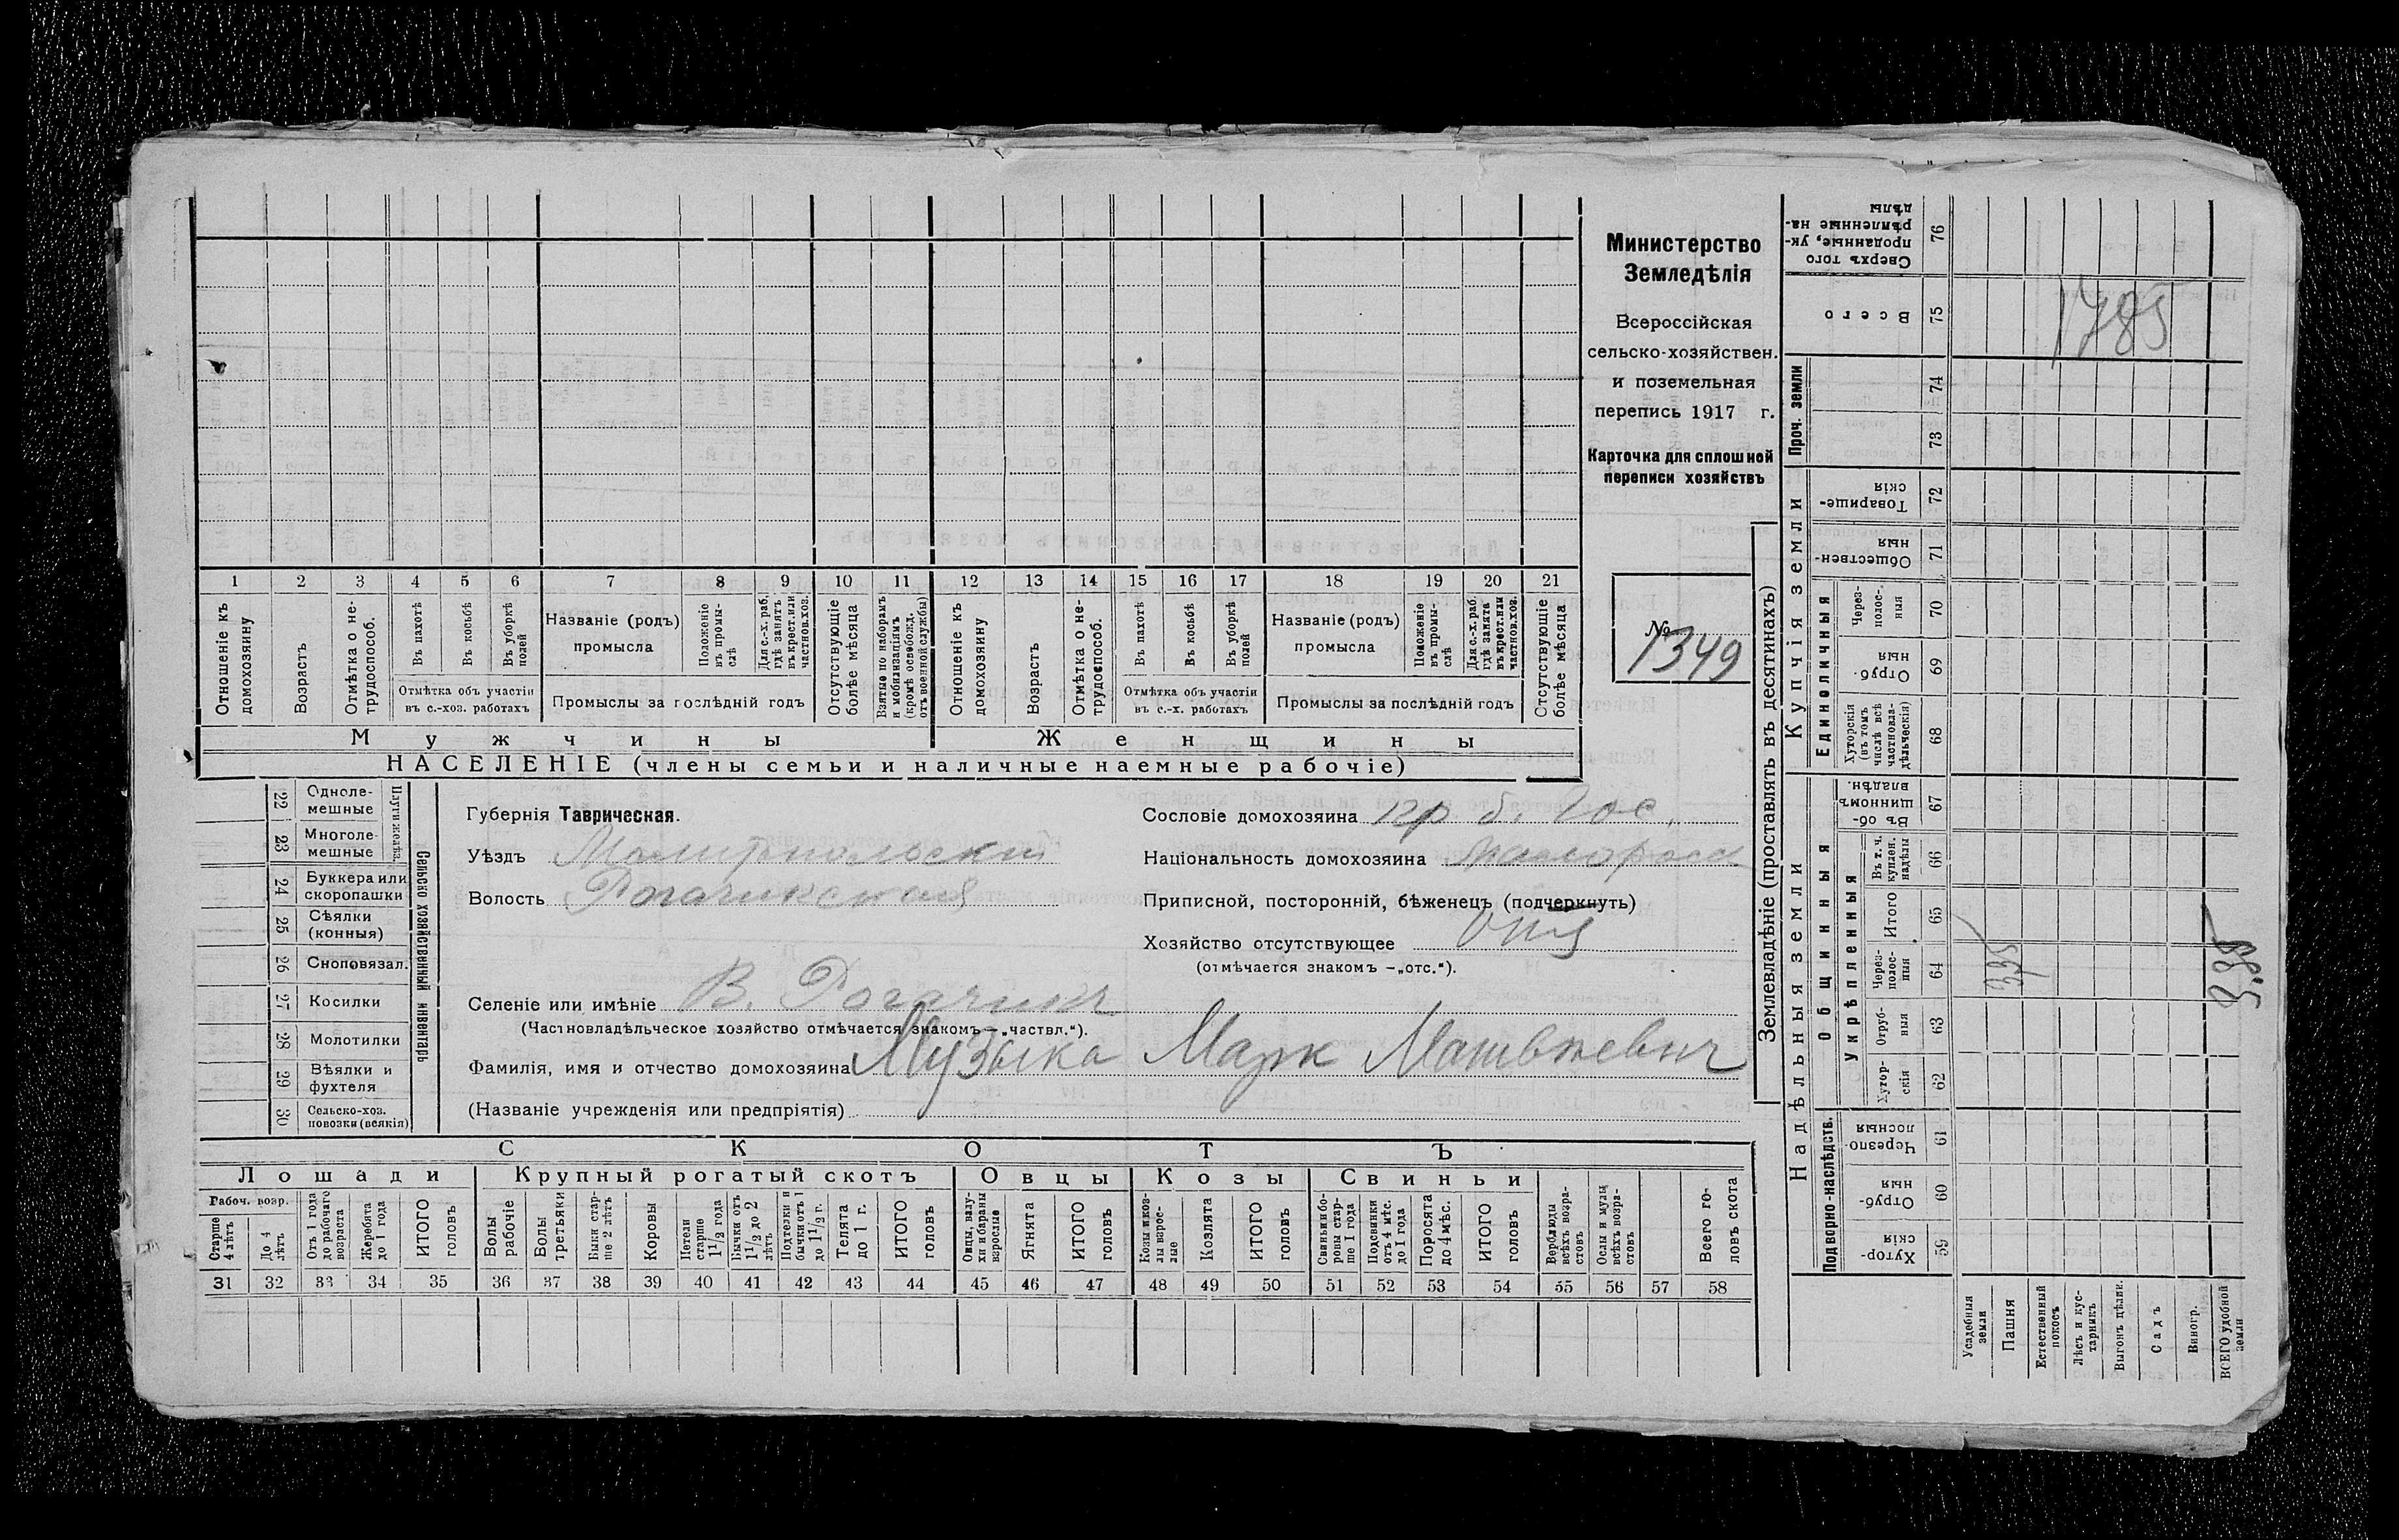 Министерство
Земледѣлія
Всероссійская
сельско-хозяйствен.
и поземельная
перепись 1917 г.
Карточка для сплошной
переписи хозяйствъ
№ 1349
1 2 3 4 5 6 7 8 9 10 11 12 13 14 15 16 17 18 19 20 21
Отношеніе къ домохозяину
Возрастъ
Отмѣтка о не-трудоспособ.
Въ пахотѣ
Въ косьбѣ
Въ уборкѣ полей
Отмѣтка объ участіи
въ с.-хоз. работахъ
Названіе (родъ)
промысла
Положеніе въ промы-слѣ
Для с.-х. раб. гдѣ занятъ въ крест. или частнов. хоз.
Промыслы за послѣдній годъ
Отсутствующіе болѣе мѣсяца
Взятые по наборамъ и мобилизаціямъ (кромѣ освобожд. отъ военной службы)
Отношеніе къ домохозяину
Возрастъ
Отмѣтка о не-трудоспособ.
Въ пахотѣ
Въ косьбѣ
Въ уборкѣ полей
Отмѣтка объ участіи
въ с.-х. работахъ
Названіе (родъ)
промысла
Положеніе въ промы-слѣ
Для с.-х. раб. гдѣ занята въ крест. или частнов. хоз.
Промыслы за послѣдній годъ
Отсутствующіе болѣе мѣсяца
Мужчины Женщины
НАСЕЛЕНІЕ (члены семьи и наличные наемные рабочіе)
22 Одноле-мешные
23 Многоле-мешные
Плуги желѣз.
24 Буккера или скоропашки
25 Сѣялки (конныя)
26 Сноповязал.
27 Косилки
28 Молотилки
29 Вѣялки и фухтеля
30 Сельско-хоз. повозки (всякія)
Сельско хозяйственный инвентарь
Губернія Таврическая.
Уѣздъ Мелитопольскій
Волость Рогачикская
Сословіе домохозяина кр. б. Гос.
Національность домохозяина Малоросс
Приписной, посторонній, бѣженецъ (подчеркнуть)
Хозяйство отсутствующее
(отмѣчается знакомъ -„отс.“).
Селеніе или имѣніе В. Рогачикъ
(Частновладѣльческое хозяйство отмѣчается знакомъ -„частвл.“).
Фамилія, имя и отчество домохозяина Музыка Марк Матвѣевич
(Названіе учрежденія или предпріятія)
СКОТЪ
Лошади Крупный рогатый скотъ Овцы Козы Свиньи
Рабоч. возр.
Старше 4 лѣтъ
До 4 лѣтъ
Отъ 1 года до рабочаго возраста
Жеребята до 1 года
ИТОГО головъ
Волы рабочіе
Волы третьяки
Быки стар-ше 2 лѣтъ
Коровы
Нетели старше 1½ года
Бычки отъ 1½ до 2 лѣтъ
Подтелки и бычки отъ 1 до 1½ г.
Телята до 1 г.
ИТОГО головъ
Овцы, валу-хи и бараны взрослые
Ягнята
ИТОГО головъ
Козы и коз-лы взрос-лые
Козлята
ИТОГО головъ
Свиньи и бо-ровы стар-ше 1 года
Подсвинки отъ 4 мѣс. до 1 года
Поросята до 4 мѣс.
ИТОГО головъ
Верблюды всѣхъ возра-стовъ
Ослы и мулы всѣхъ возра-стовъ
Всего го-ловъ скота
31 32 33 34 35 36 37 38 39 40 41 42 43 44 45 46 47 48 49 50 51 52 53 54 55 56 57 58
Землевладѣніе (проставлять въ десятинахъ)
Надѣльныя земли Купчія земли Проч. земли
Подворно-наслѣдств.
Общинныя
Укрѣпленныя
Единоличныя
Сверхъ того проданные, ук-рѣпленные на-дѣлы 76
Всего 75 1785
74
73
Товарище-скія 72
Обществен-ныя 71
Через-полос-ныя 70
Отруб-ныя 69
Хуторскія (въ томъ числѣ всѣ частновла-дѣльческія) 68
Въ об-щинномъ владѣн. 67
Въ т. ч. куплен. надѣлы 66
Итого 65
Через-полос-ныя 64 335
Отруб-ныя 63
Хутор-скія 62
Черезпо-лосныя 61
Отруб-ныя 60
Хутор-скія 59
Усадебныя земли
Пашня
Естественный покосъ
Лѣсъ и кус-тарникъ
Выгонъ дѣлин.
Садъ
Виногр.
ВСЕГО удобной земли